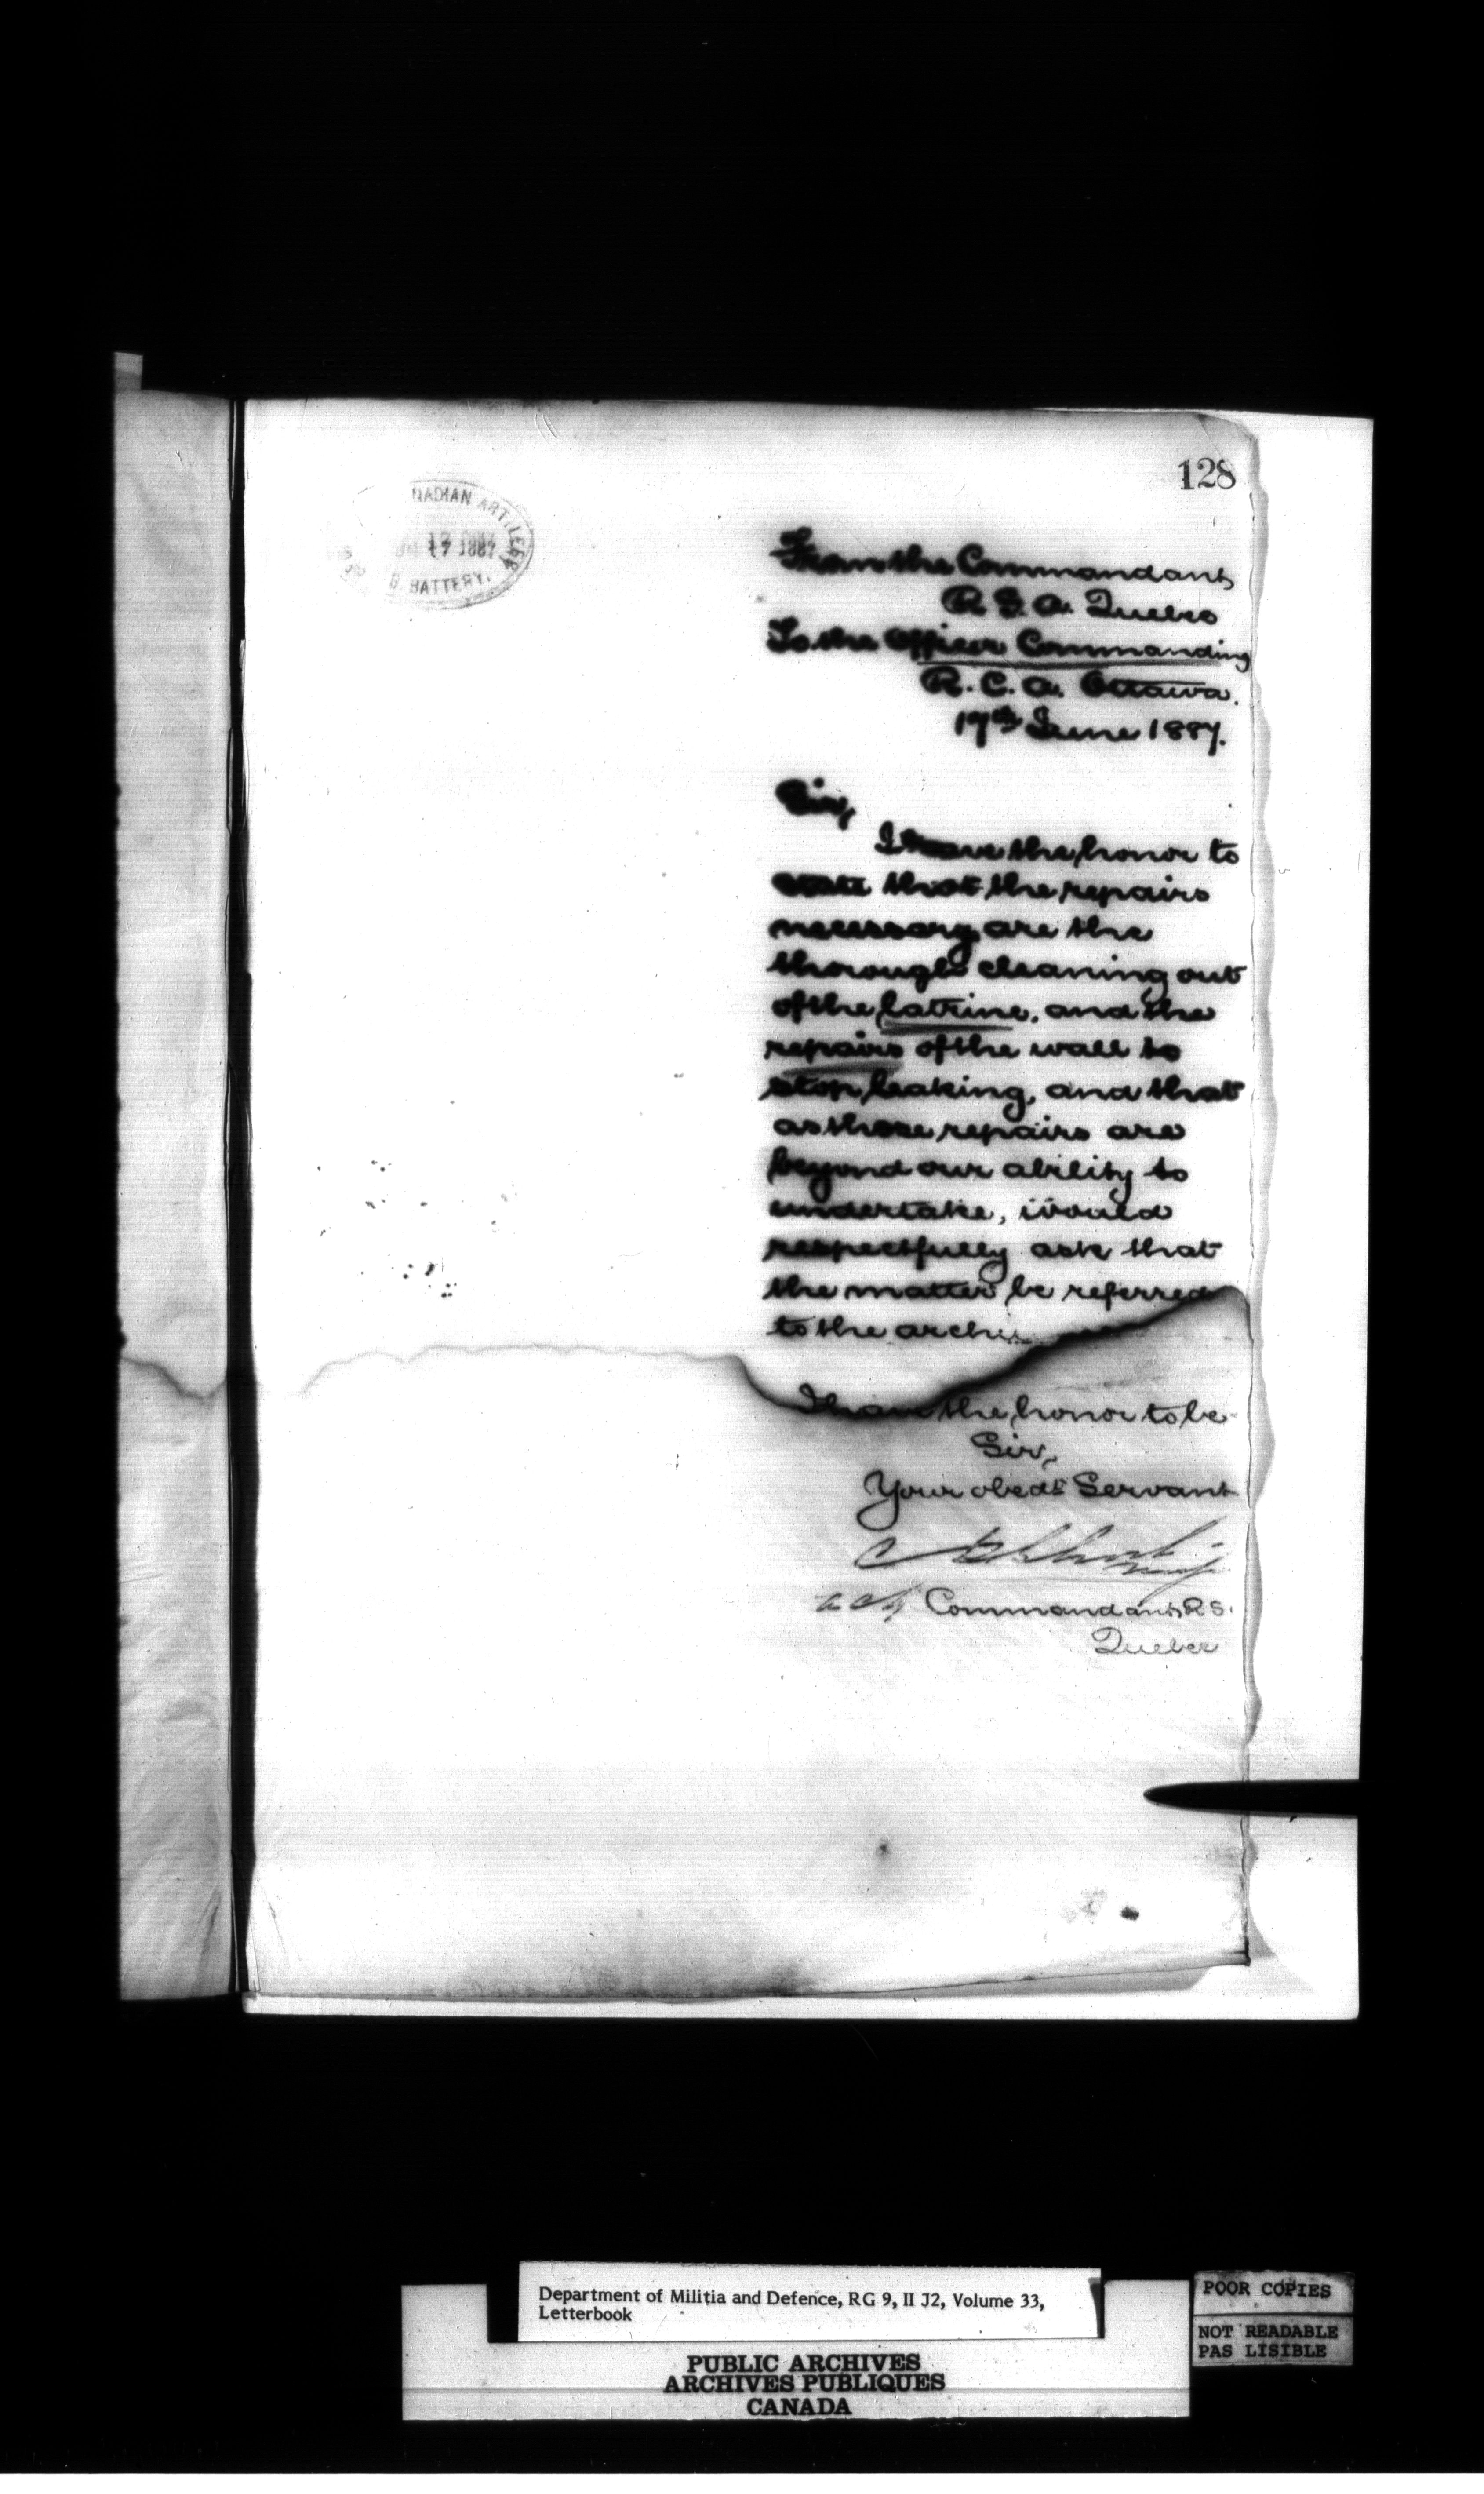 128
NADIAN ARTILLERY
17 1887
B BATTERY.
From the Commandant
R S. A. Quebec
To the Officer Commanding
R. C. A. Ottawa.
17th June 1887.
Sir,
I have the honor to
state that the repairs
necessary are the
thorough cleaning out
of the latrine, and the
repairs of the wall to
stop leaking, and that
as those repairs are
beyond our ability to
undertake, would
respectfully ask that
the matter be referred
to the archi
I have the honor to be
Sir,
Your obedt Servant
Commandant R S.
Quebec
Department of Militia and Defence, RG 9, II J2, Volume 33,
Letterbook
POOR COPIES
NOT READABLE
PAS LISIBLE
PUBLIC ARCHIVES
ARCHIVES PUBLIQUES
CANADA